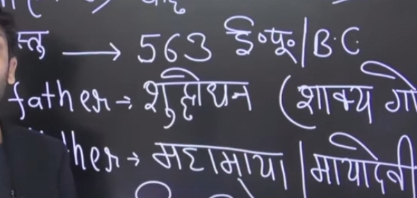 → 563 ई०पू०/B.C
father → शुद्धोधन (शाक्य गो
ther → महामाया / मायादेवी